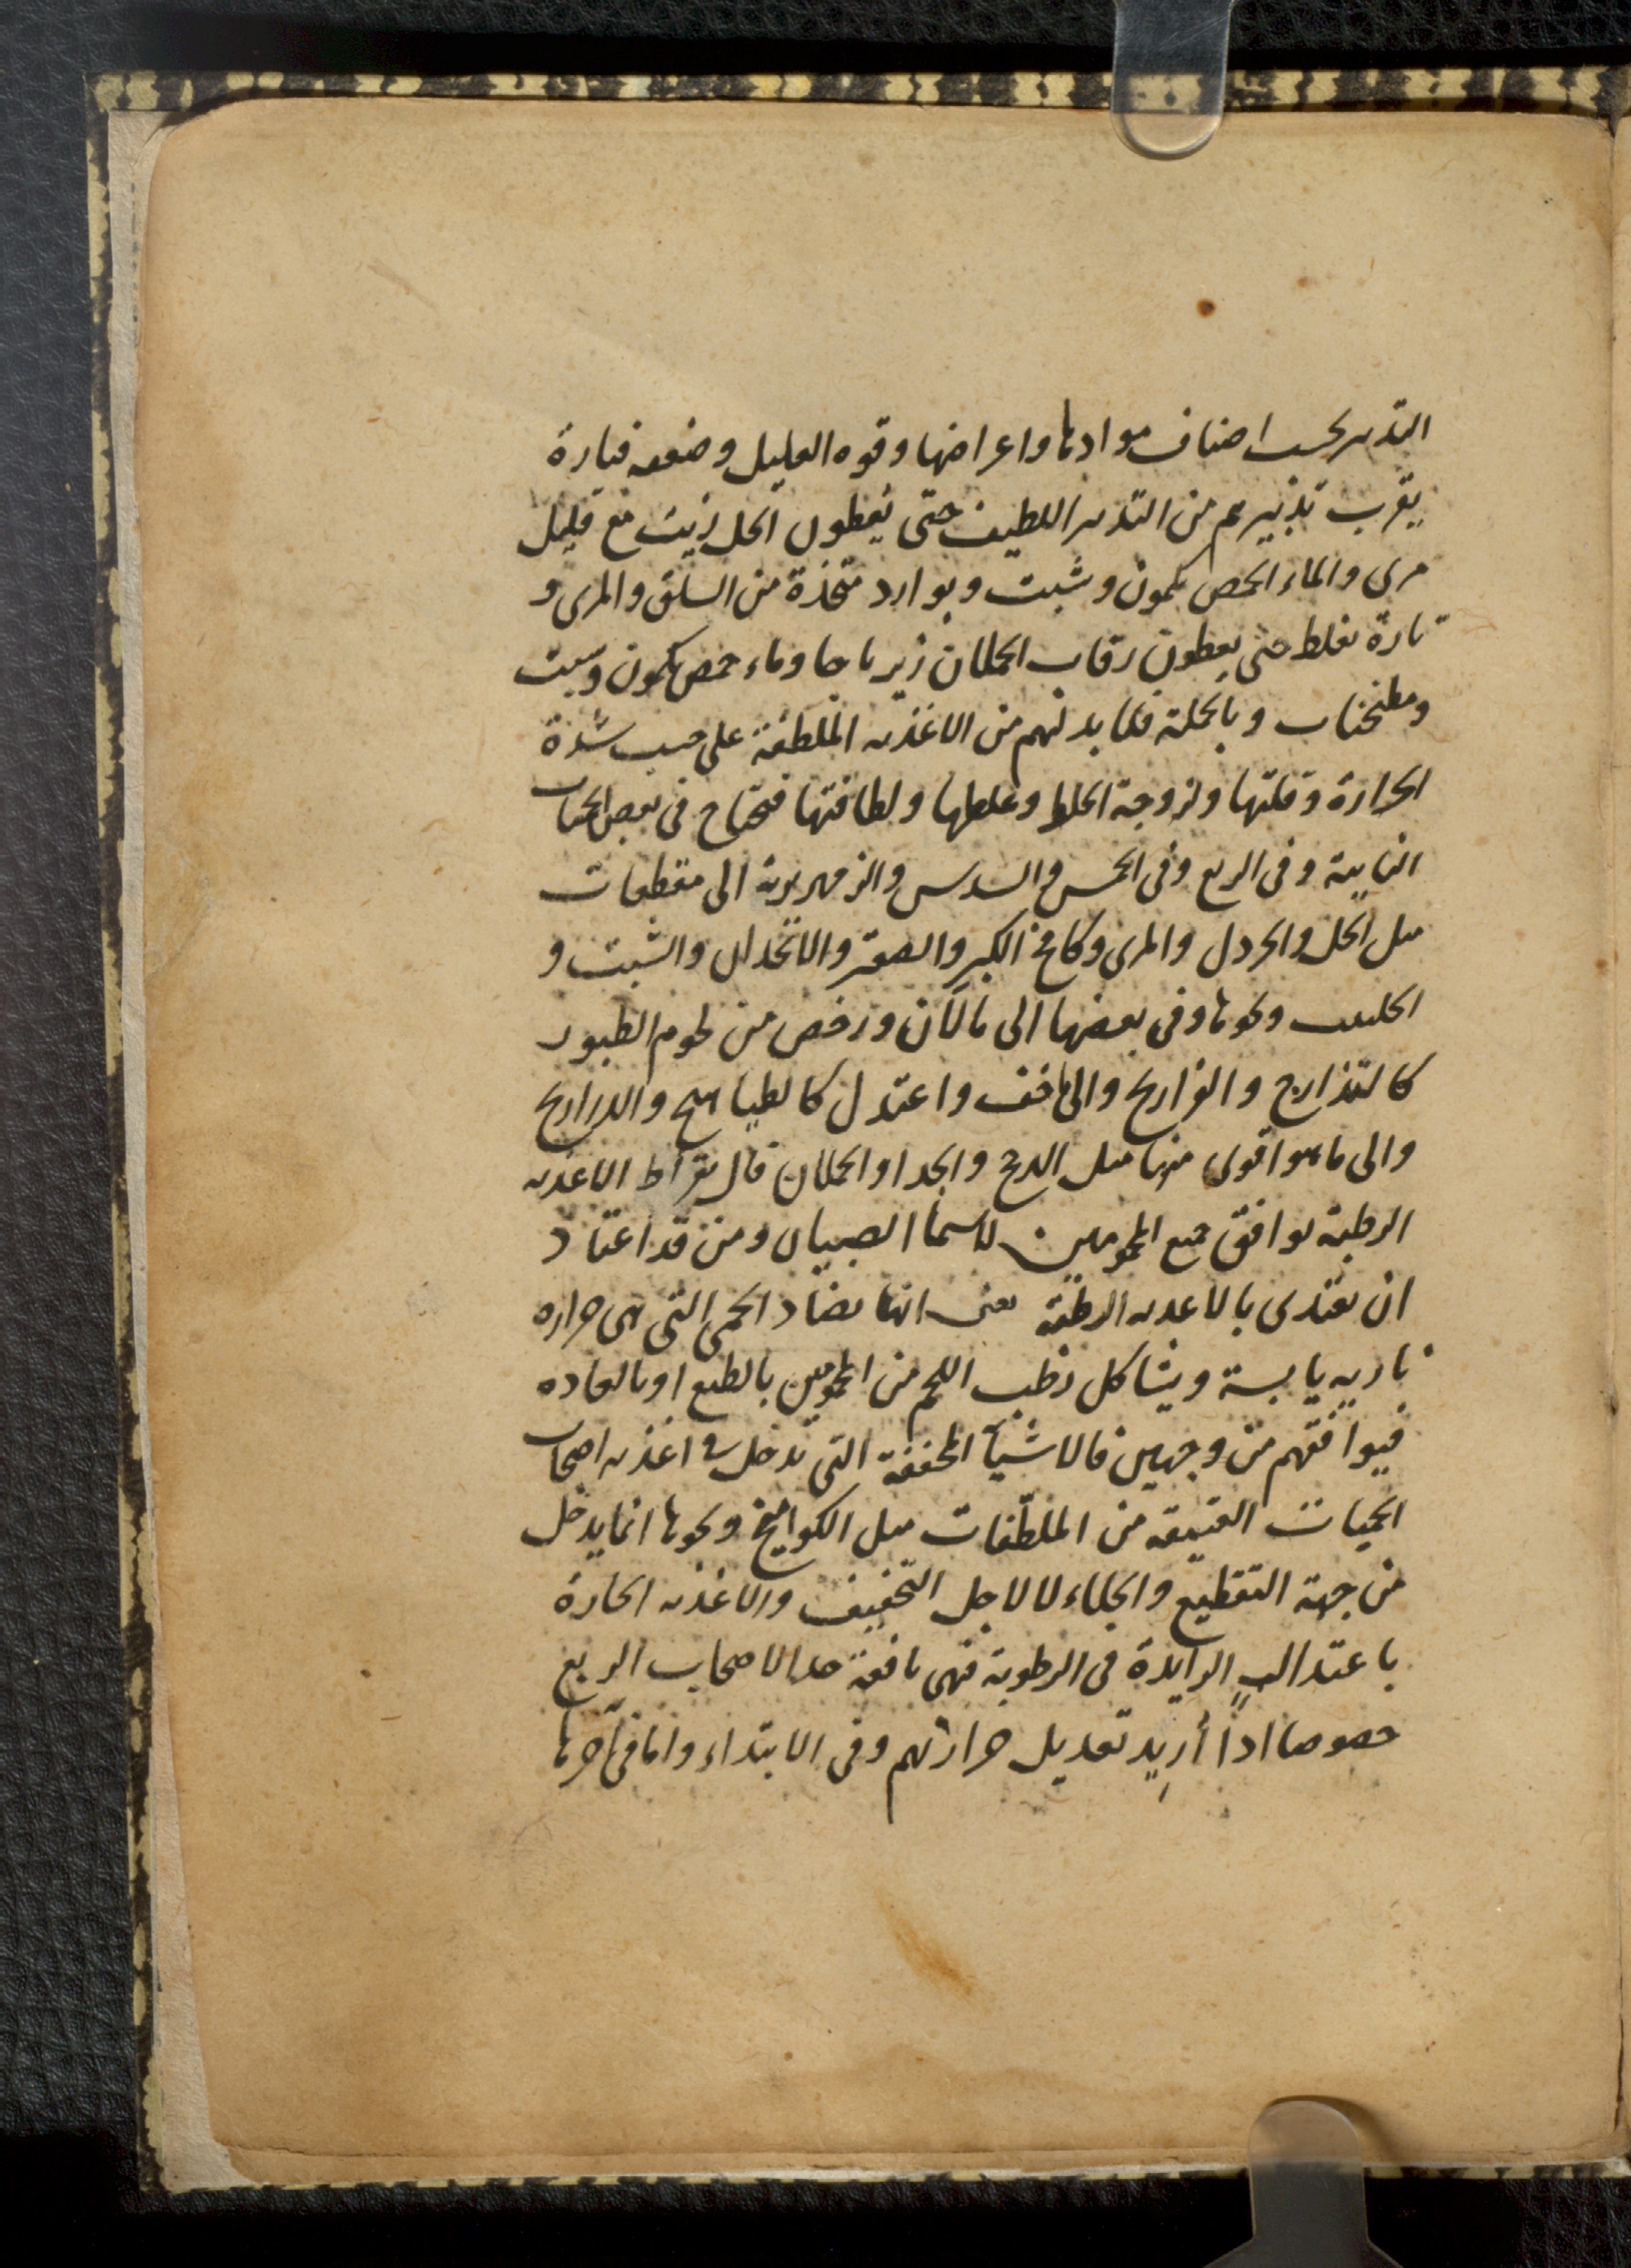 التدبير بحسب اصناف موادها واعراضها وقوه العليل وضعفه فتارة
يقرب تدبيرهم من التدبير اللطيف حتى يعطون الخل زيت مع قليل
مرى والماء الحمص بكمون وشبت وبوارد متخذة من السلق والمرى و
تارة يغلظ حتى يعطون رقاب الحملان زيرباجا وماء حمص بكمون وشبت
ومطجنات وبالجملة فلا بد لهم من الاغذيه الملطفة على حسب شدة
الحرارة وقلتها ولزوجة الخلط وغلظها ولطافتها فتحتاج فى بعض الحميات
النايبة وفى الربع وفى الخمس والسدس والزمهريرية الى مقطعات
مثل الخل والخردل والمرى وكامخ الكبر والصعتر والانجدان والشبت و
الحلتيت ونحوها وفى بعضها الى ما لان ورخص من لحوم الطيور
كالتذارج والفراريج والى ما خف واعتدل كالطياهيج والدراريج
والى ما هو اقوى منها مثل الدجج والجدا والحملان قال بقراط الاغذيه
الرطبة توافق جميع المحمومين لاسيما الصبيان ومن قد اعتاد
ان يغتذى بالاغذيه الرطبة يعنى انها تضاد الحمى التى هى حراره
ناريه يابسة ويشاكل رطب اللحم من المحمومين بالطبع او بالعاده
فيوافقهم من وجهين فالاشيآ المجففة التى تدخل فى اغذيه اصحاب
الحميات العتيقه من الملطّفات مثل الكواميخ ونحوها انما يدخل
من جهة التقطيع والجلاء لا لاجل التجفيف والاغذيه الحارة
باعتدالٍ الزايدة فى الرطوبة فهى نافعة جدا لاصحاب الربع
خصوصا اذا أُريد تعديل حرارتهم وفى الابتداء واما فى آخرها